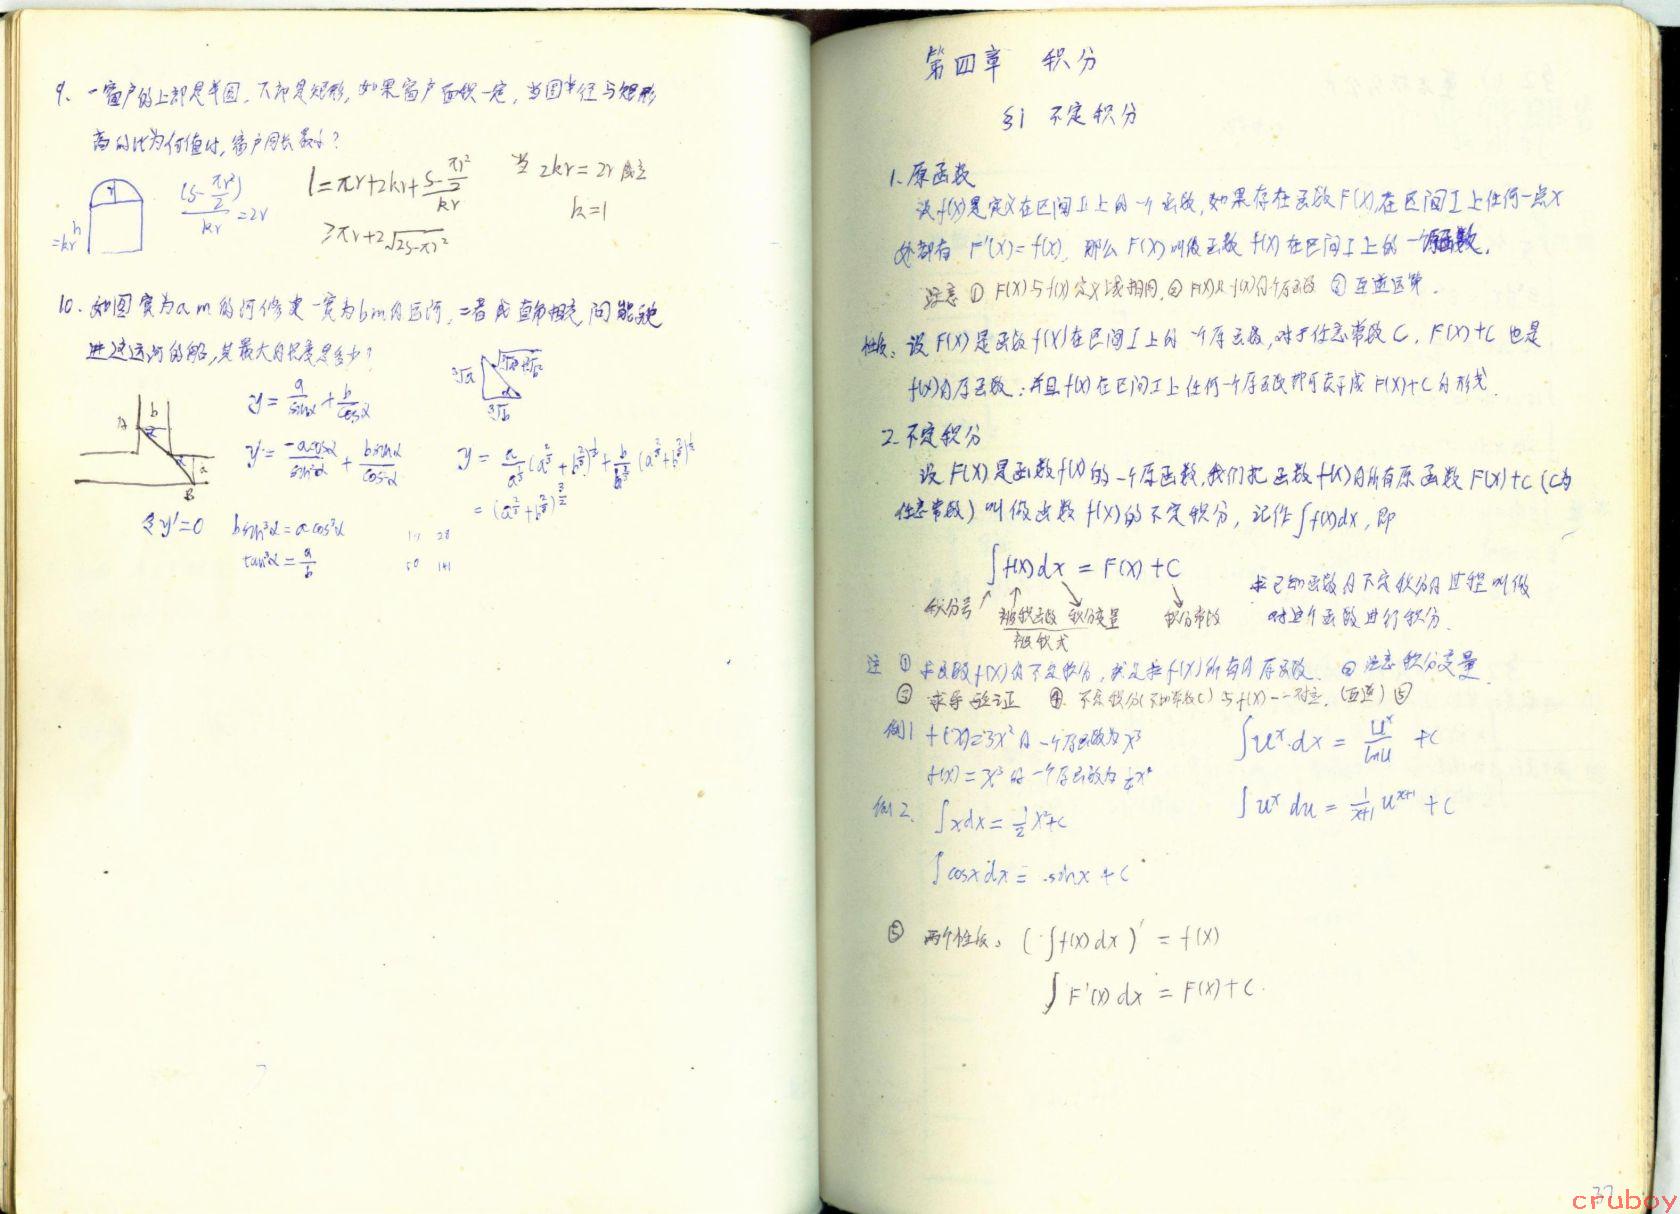 9. 一窗户的上部是半圆，下部是矩形，如果窗户面积一定，当圆半径与矩形
高的比为何值时，窗户周长最小？
r
h
=kr
(S-πr²/2)/kr=2r
l=πr+2kr+(S-πr²/2)/kr
≥πr+2√(2S-πr²)
当 2kr=2r 成立
k=1
10. 如图宽为a m的河修建一宽为b m的运河，二者成直角相交，问能驶
进这运河的船，其最大的长度是多少？
A
b
α
a
B
y=a/sinα+b/cosα
³√a
α
³√b
y'=-acosα/sin²α+bsinα/cos²α
令y'=0
bsin³α=acos³α
tan³α=a/b
y=a/a^(1/3)(a^(2/3)+b^(2/3))^(1/2)+b/b^(1/3)(a^(2/3)+b^(2/3))^(1/2)
=(a^(2/3)+b^(2/3))^(3/2)
第四章 积分
§1 不定积分
1.原函数
设f(x)是定义在区间I上的一个函数，如果存在函数F(x),在区间I上任何一点x
处都有 F'(x)=f(x)，那么F(x)叫做函数f(x)在区间I上的一个原函数.
注意 ① F(x)与f(x)定义域相同，② F(x)是f(x)的一个原函数 ③ 互逆运算.
性质：设F(x)是函数f(x)在区间I上的一个原函数，对于任意常数C，F(x)+C也是
f(x)的原函数；并且f(x)在区间I上任何一个原函数都可表示成F(x)+C的形式.
2.不定积分
设F(x)是函数f(x)的一个原函数，我们把函数f(x)的所有原函数F(x)+C（C为
任意常数）叫做函数f(x)的不定积分，记作∫f(x)dx，即
∫f(x)dx=F(x)+C
积分号 被积函数 积分变量 积分常数
被积式
求已知函数的不定积分的过程叫做
对这个函数进行积分.
注 ① 求函数f(x)的不定积分，就是求f(x)所有的原函数. ② 注意积分变量.
③ 求导验证 ④ 不定积分(不如常数C)与f(x)一一对应.（互逆）⑤
例1 f(x)=3x²的一个原函数为x³
f(x)=x³的一个原函数为¼x⁴
例2. ∫xdx=½x²+C
∫cosxdx=sinx+C
∫uˣdx=uˣ/lnu+C
∫uˣdu=1/(x+1) uˣ⁺¹+C
⑤ 两个性质：(∫f(x)dx)'=f(x)
∫F'(x)dx=F(x)+C.
37
cruboy